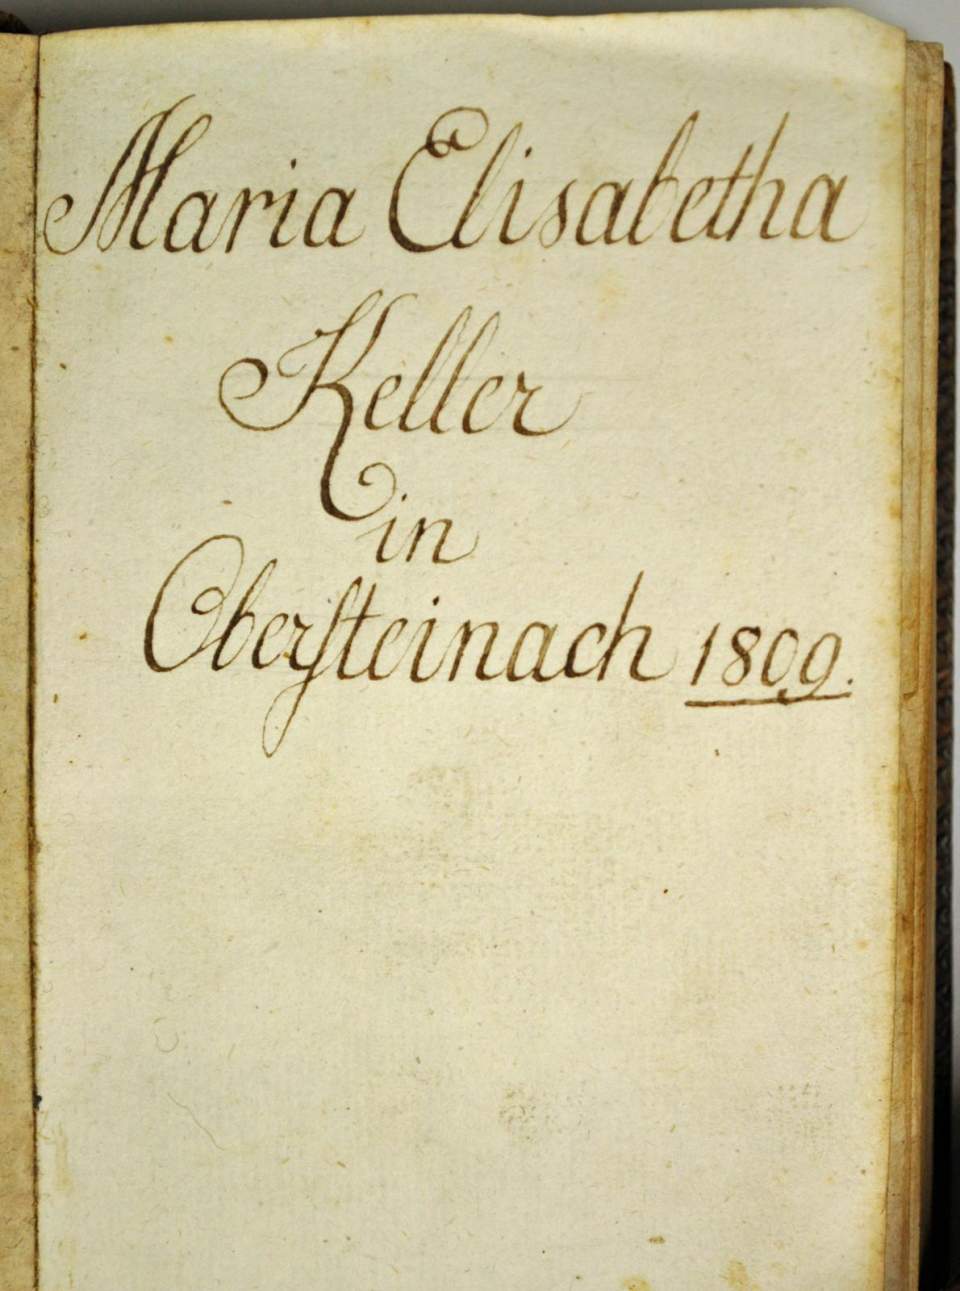 Maria Elisabetha
Keller
in
Oberſteinach 1809.